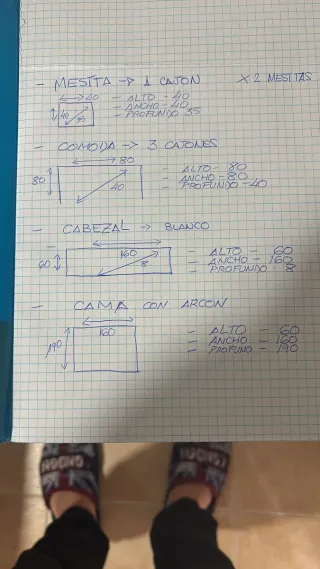 - MESITA → 1 CAJON X 2 MESITAS
40 - ALTO - 40
40 - ANCHO - 40
- PROFUNDO 35
- COMODA → 3 CAJONES
80 - ALTO - 80
80 - ANCHO - 80
40 - PROFUNDO - 40
- CABEZAL → BLANCO
160 - ALTO - 60
60 - ANCHO - 160
8 - PROFUNDO 8
- CAMA CON ARCON
160 - ALTO - 60
190 - ANCHO - 160
- PROFUNO - 190